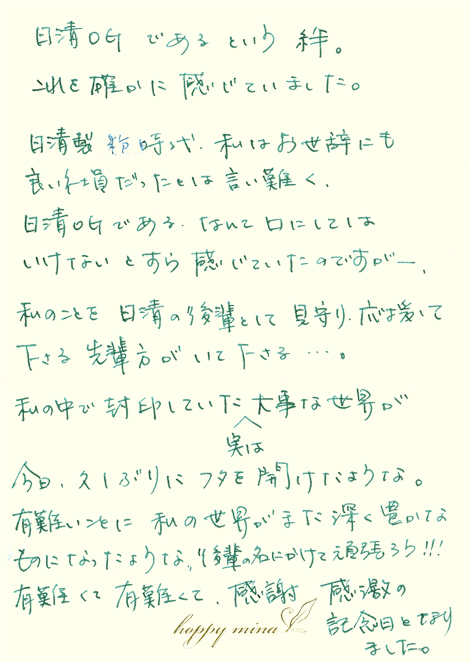 日清OGであるという絆。
これを確かに感じていました。
日清製粉時代、私はお世辞にも
良い社員だったとは言い難く、
日清OGである、なんて口にしては
いけないとすら感じていたのですがー、
私のことを日清の後輩として見守り、応援して
下さる先輩方がいて下さる…。
私の中で封印していた実は大事な世界が
今日、久しぶりにフタを開けたような。
有難いことに私の世界がまた深く豊かな
ものになったような、後輩の名にかけて頑張ろう!!!
有難くて有難くて、感謝感激の
記念日となり
ました。
happy mina